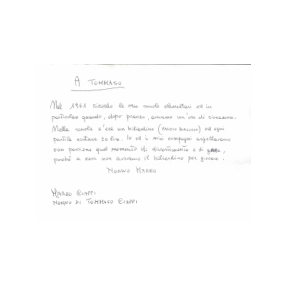 A TOMMASO
Nel 1961 ricordo le mie scuole elementari ed in
particolare quando, dopo pranzo, avevamo un'ora di ricreazione.
Nelle scuole c'era un biliardino ( ) ed ogni
partita costava 20 lire. Io ed i miei compagni aspettavamo
con passione quel momento di divertimento e di
poiché a casa non avevamo il biliardino per giocare.
NONNO MAURO
MAURO CIOFFI
NONNO DI TOMMASO CIOFFI